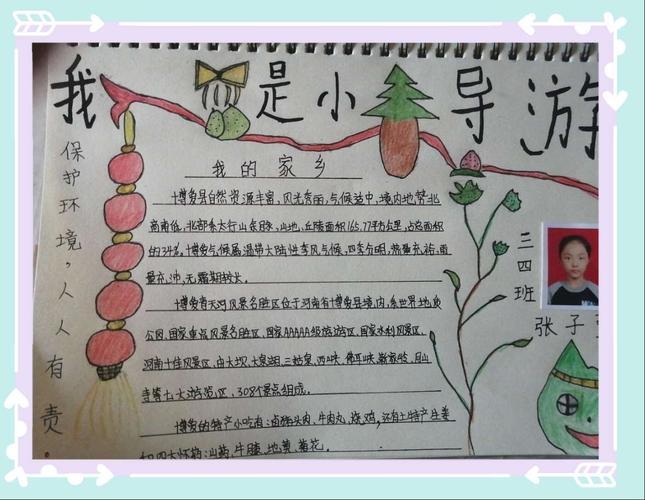 我是小导游
保护环境，人人有责。
我的家乡
十博爱县自然资源丰富，风光秀丽，气候适中，境内地势北
高南低，北部系太行山余脉，山地、丘陵面积165.77平方公里，占总面积
的34%。博爱气候属温带大陆性季风气候，四季分明，热量充裕，雨
量充沛，无霜期较长。
博爱青天河风景名胜区位于河南省博爱县境内，系世界地质
公园、国家重点风景名胜区、国家AAAAA级旅游区、国家水利风景区、
河南十佳风景区，由大坝、大泉湖、三姑泉、西峡、佛耳峡、靳家岭、月山
寺等七大游览区、308个景点组成。
博爱的特产小吃有：卤猪头肉、牛肉丸、烧鸡，还有土特产生姜
和四大怀药：山药、牛膝、地黄、菊花。
三四班
张子